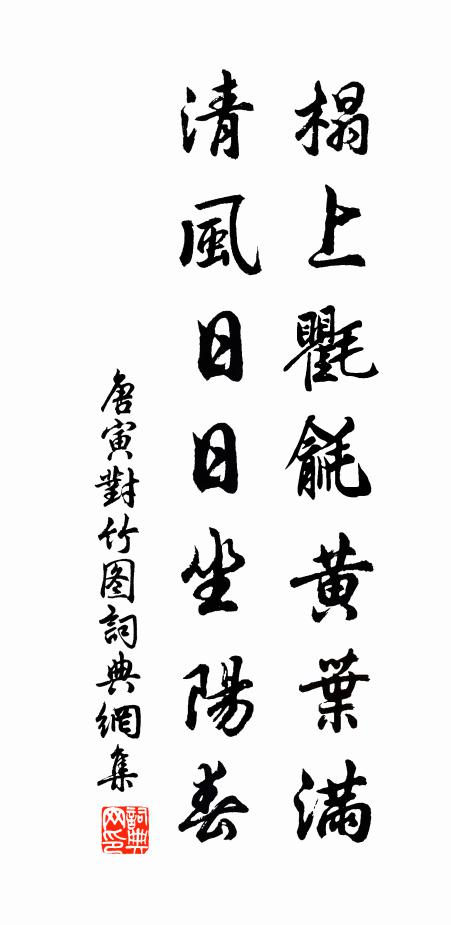 榻上氍毹黄葉滿
清風日日坐陽春
唐寅對竹图詞典網集
詞典網印